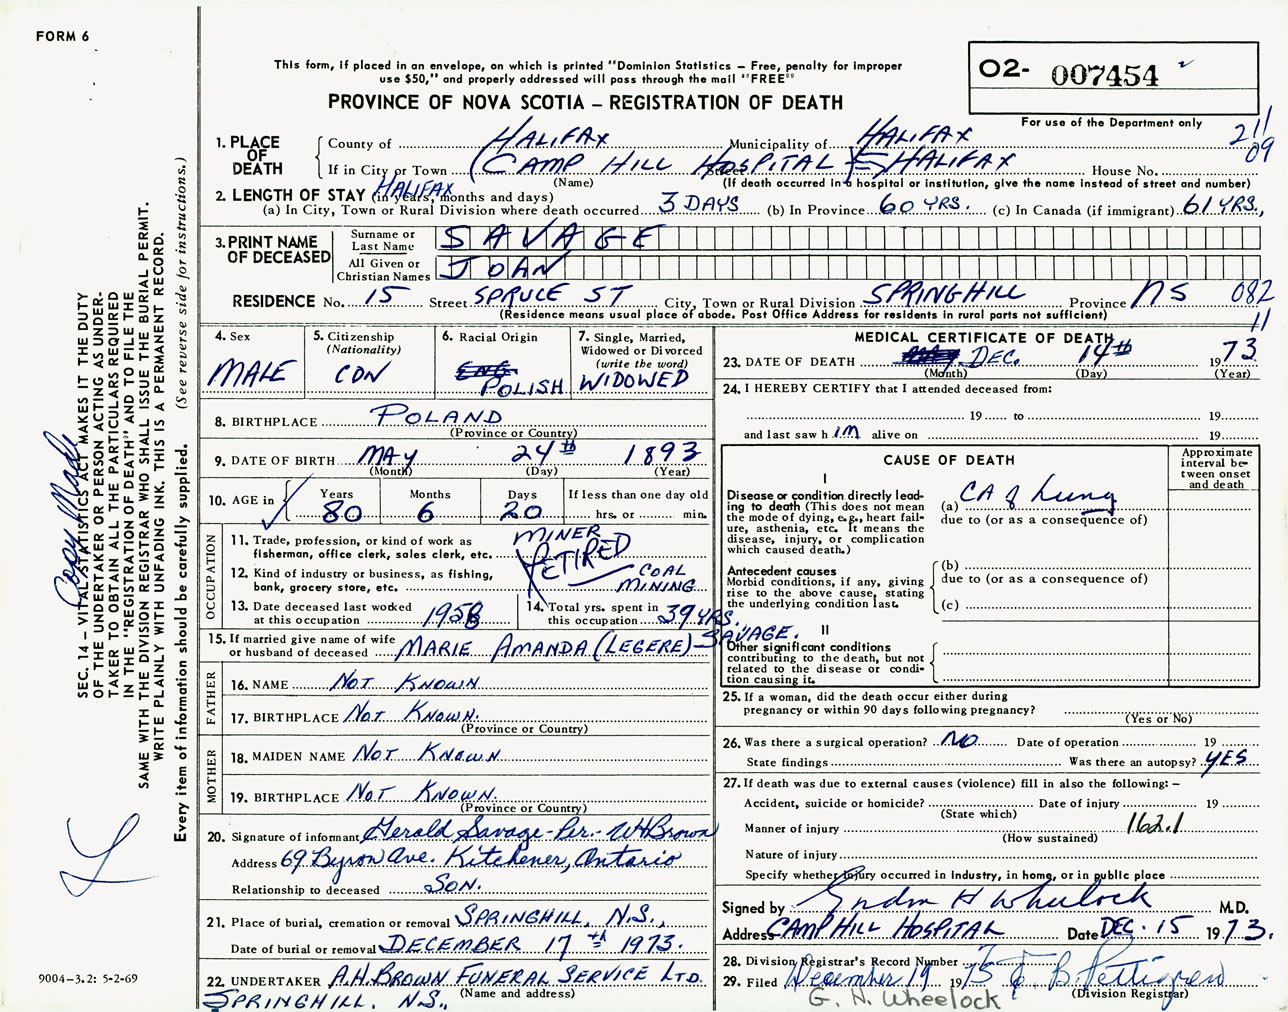 FORM 6
This form, if placed in an envelope, on which is printed "Dominion Statistics – Free, penalty for improper
use $50," and properly addressed will pass through the mail "FREE"
PROVINCE OF NOVA SCOTIA – REGISTRATION OF DEATH
02- 007454
For use of the Department only
211
09
1. PLACE OF DEATH
County of HALIFAX Municipality of HALIFAX
If in City or Town (CAMP HILL HOSPITAL) HALIFAX House No.
(Name) (If death occurred in a hospital or institution, give the name instead of street and number)
HALIFAX
2. LENGTH OF STAY (in years, months and days)
(a) In City, Town or Rural Division where death occurred 3 DAYS (b) In Province 60 YRS. (c) In Canada (if immigrant) 61 YRS.,
3. PRINT NAME OF DECEASED
Surname or Last Name SAVAGE
All Given or Christian Names JOHN
RESIDENCE No. 15 Street SPRUCE ST City, Town or Rural Division SPRINGHILL Province NS 082
(Residence means usual place of abode. Post Office Address for residents in rural parts not sufficient) 11
4. Sex
MALE
5. Citizenship (Nationality)
CDN
6. Racial Origin
ENG
POLISH
7. Single, Married, Widowed or Divorced (write the word)
WIDOWED
8. BIRTHPLACE POLAND
(Province or Country)
9. DATE OF BIRTH MAY 24th 1893
(Month) (Day) (Year)
10. AGE in Years 80 Months 6 Days 20 If less than one day old hrs. or min.
OCCUPATION
11. Trade, profession, or kind of work as fisherman, office clerk, sales clerk, etc. MINER
RETIRED
12. Kind of industry or business, as fishing, bank, grocery store, etc. COAL MINING
13. Date deceased last worked at this occupation 1958
14. Total yrs. spent in this occupation 39 YRS.
15. If married give name of wife or husband of deceased MARIE AMANDA (LEGERE) SAVAGE.
FATHER
16. NAME NOT KNOWN
17. BIRTHPLACE NOT KNOWN.
(Province or Country)
MOTHER
18. MAIDEN NAME NOT KNOWN
19. BIRTHPLACE NOT KNOWN.
(Province or Country)
20. Signature of informant Gerald Savage-Per.-WHBrown
Address 69 Byron Ave. Kitchener, Ontario
Relationship to deceased SON.
21. Place of burial, cremation or removal SPRINGHILL, N.S.,
Date of burial or removal DECEMBER 17th 1973.
22. UNDERTAKER A.H. BROWN FUNERAL SERVICE LTD.
(Name and address)
SPRINGHILL. N.S.,
MEDICAL CERTIFICATE OF DEATH
23. DATE OF DEATH DEC. 14th 1973
(Month) (Day) (Year)
24. I HEREBY CERTIFY that I attended deceased from:
19 to 19
and last saw him alive on 19
CAUSE OF DEATH
Approximate interval between onset and death
I
Disease or condition directly leading to death (This does not mean the mode of dying, e.g., heart failure, asthenia, etc. It means the disease, injury, or complication which caused death.)
(a) CA of Lung
due to (or as a consequence of)
Antecedent causes
Morbid conditions, if any, giving rise to the above cause, stating the underlying condition last.
(b)
due to (or as a consequence of)
(c)
II
Other significant conditions contributing to the death, but not related to the disease or condition causing it.
25. If a woman, did the death occur either during pregnancy or within 90 days following pregnancy?
(Yes or No)
26. Was there a surgical operation? NO Date of operation 19
State findings Was there an autopsy? YES
27. If death was due to external causes (violence) fill in also the following: –
Accident, suicide or homicide? Date of injury 19
(State which)
Manner of injury 162.1
(How sustained)
Nature of injury
Specify whether injury occurred in industry, in home, or in public place
Signed by H Wheelock M.D.
Address CAMP HILL HOSPITAL Date DEC. 15 1973.
28. Division Registrar's Record Number
29. Filed December 19 1973 B. Pettigrew
(Division Registrar)
G. H. Wheelock
SEC. 14 – VITAL STATISTICS ACT MAKES IT THE DUTY
OF THE UNDERTAKER OR PERSON ACTING AS UNDERTAKER
TO OBTAIN ALL THE PARTICULARS REQUIRED
IN THE "REGISTRATION OF DEATH" AND TO FILE THE
SAME WITH THE DIVISION REGISTRAR WHO SHALL ISSUE THE BURIAL PERMIT.
WRITE PLAINLY WITH UNFADING INK. THIS IS A PERMANENT RECORD.
Every item of information should be carefully supplied. (See reverse side for instructions.)
Copy Made
9004–3.2: 5-2-69